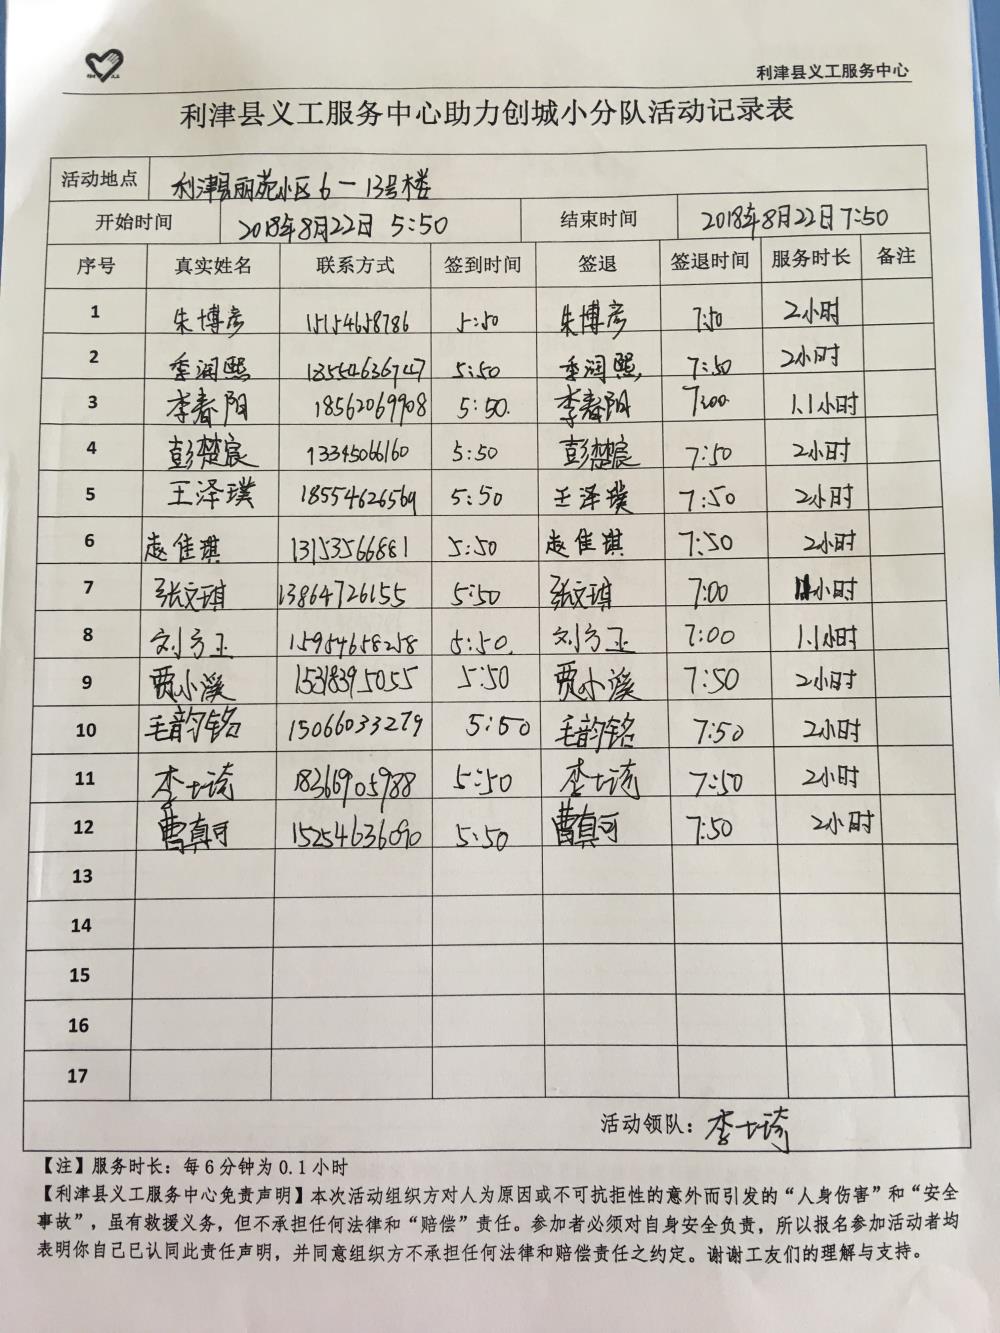 利津县义工服务中心
利津县义工服务中心助力创城小分队活动记录表
活动地点 利津县丽苑小区6一13号楼
开始时间 2018年8月22日 5:50 结束时间 2018年8月22日7:50
序号 真实姓名 联系方式 签到时间 签退 签退时间 服务时长 备注
1 朱博彦 15154658786 5:50 朱博彦 7:50 2小时
2 季润熙 18554636747 5:50 季润熙 7:50 2小时
3 李春阳 18562069908 5:50. 李春阳 7:00 1.1小时
4 彭楚宸 13345066160 5:50 彭楚宸 7:50 2小时
5 王泽璞 18554626569 5:50 王泽璞 7:50 2小时
6 赵佳琪 13153566881 5:50 赵佳琪 7:50 2小时
7 张文琪 13864726155 5:50 张文琪 7:00 小时
8 刘方玉 15954658258 5:50. 刘方玉 7:00 1.1小时
9 贾小溪 15318395055 5:50 贾小溪 7:50 2小时
10 毛韵铭 15066033279 5:50 毛韵铭 7:50 2小时
11 李士琦 18366905988 5:50 李士琦 7:50 2小时
12 曹真可 15254636090 5:50 曹真可 7:50 2小时
13
14
15
16
17
活动领队：李士琦
【注】服务时长：每6分钟为0.1小时
【利津县义工服务中心免责声明】本次活动组织方对人为原因或不可抗拒性的意外而引发的“人身伤害”和“安全
事故”，虽有救援义务，但不承担任何法律和“赔偿”责任。参加者必须对自身安全负责，所以报名参加活动者均
表明你自己已认同此责任声明，并同意组织方不承担任何法律和赔偿责任之约定。谢谢工友们的理解与支持。